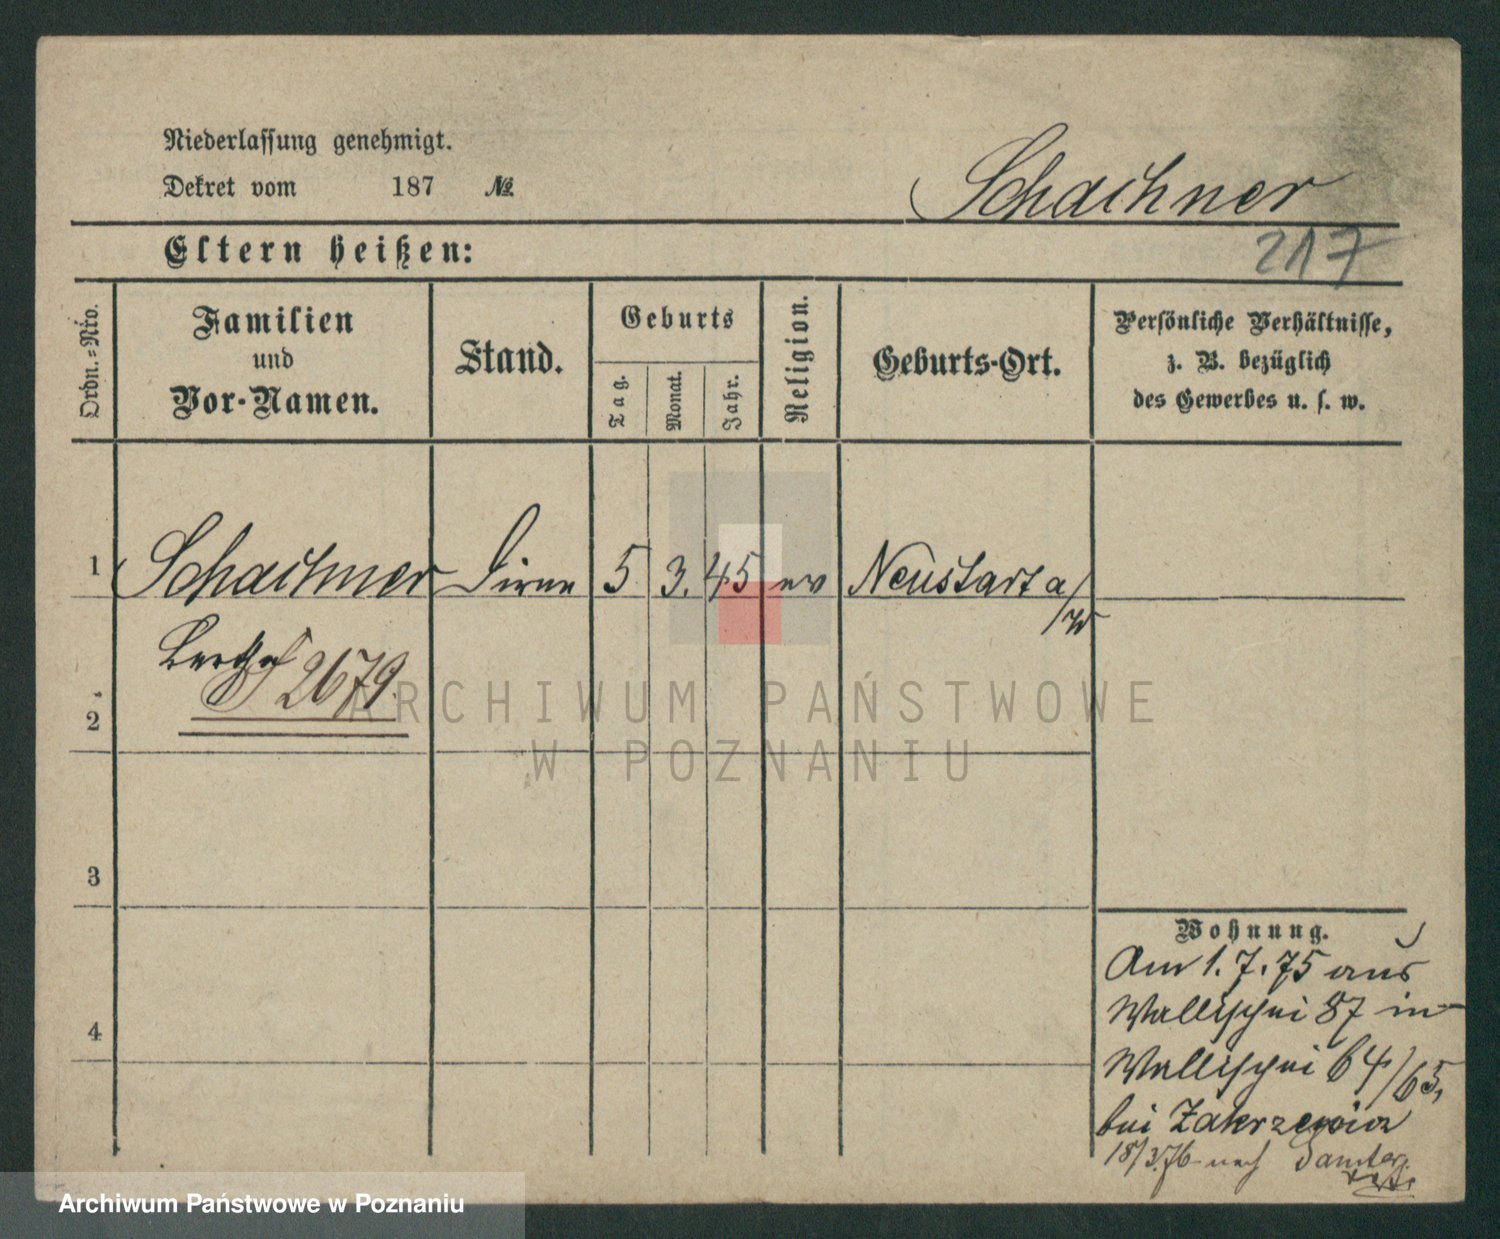 Niederlassung genehmigt.
Dekret vom 187 №
Schachner
217
Eltern heißen:
Ordn.=Nro.
Familien
und
Vor-Namen.
Stand.
Geburts
Tag.
Monat.
Jahr.
Religion.
Geburts-Ort.
Persönliche Verhältnisse,
z. B. bezüglich
des Gewerbes u. s. w.
1 Schachner Dirne 5 3. 45 ev Neustadt a/W
Bertha
2679.
2
3
4
Wohnung.
Am 1. 7. 75 aus
Wallischei 87 in
Wallischei 64/65,
bei Zakrzewicz
18/3.76 nach
ARCHIWUM PAŃSTWOWE
W POZNANIU
Archiwum Państwowe w Poznaniu